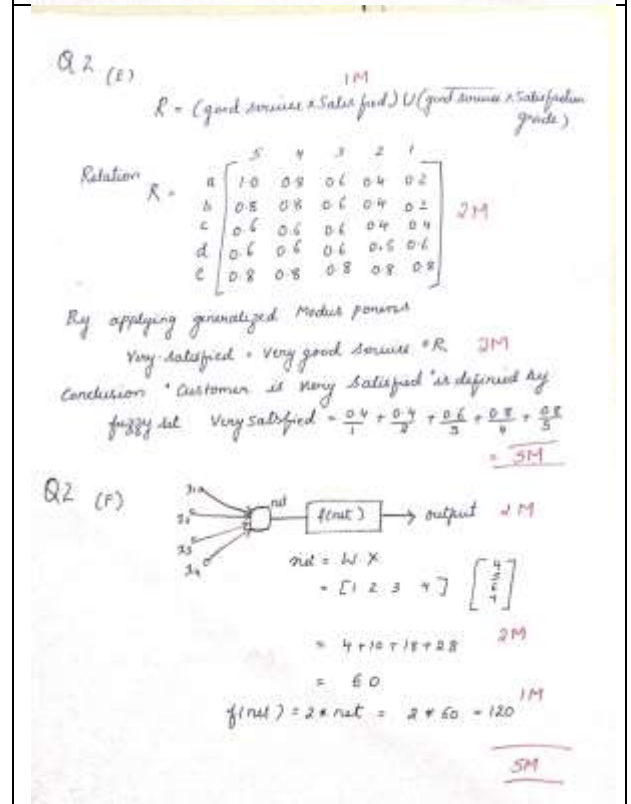 Q2 (E)
1M
R = (good service × Satisfied) U (good service × Satisfaction
grade)
5 4 3 2 1
Relation R = a 1.0 0.8 0.6 0.4 0.2
b 0.8 0.8 0.6 0.4 0.2
c 0.6 0.6 0.6 0.4 0.4 2M
d 0.6 0.6 0.6 0.6 0.6
e 0.8 0.8 0.8 0.8 0.8
By applying generalized Modus ponens
Very satisfied = Very good service ∘ R 2M
Conclusion "Customer is Very Satisfied" is defined by
fuzzy set Very Satisfied = 0.4/1 + 0.4/2 + 0.6/3 + 0.8/4 + 0.8/5
= 5M
Q2 (F)
x1
net
x2 f(net) → output 2M
x3
x4
net = W.X
= [1 2 3 4] [4 5 6 7]
= 4+10+18+28 2M
= 60
f(net) = 2 * net = 2 * 60 = 120 1M
5M